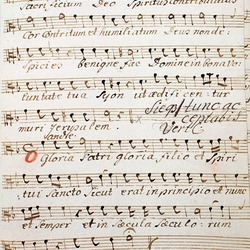 Sacrificium Deo Spiritus contribulatus
Cor contritum et humiliatum Deus non de:
spicies benigne fac Domine in bona vo:
luntate tua Sion ut aedificentur
muri Jerusalem. Siegs tunc ac
ceptabis
Verte
O Gloria Patri gloria filio et Spiri
tui Sancto Sicut erat in principio et nunc
et semper et in Saecula Saeculorum